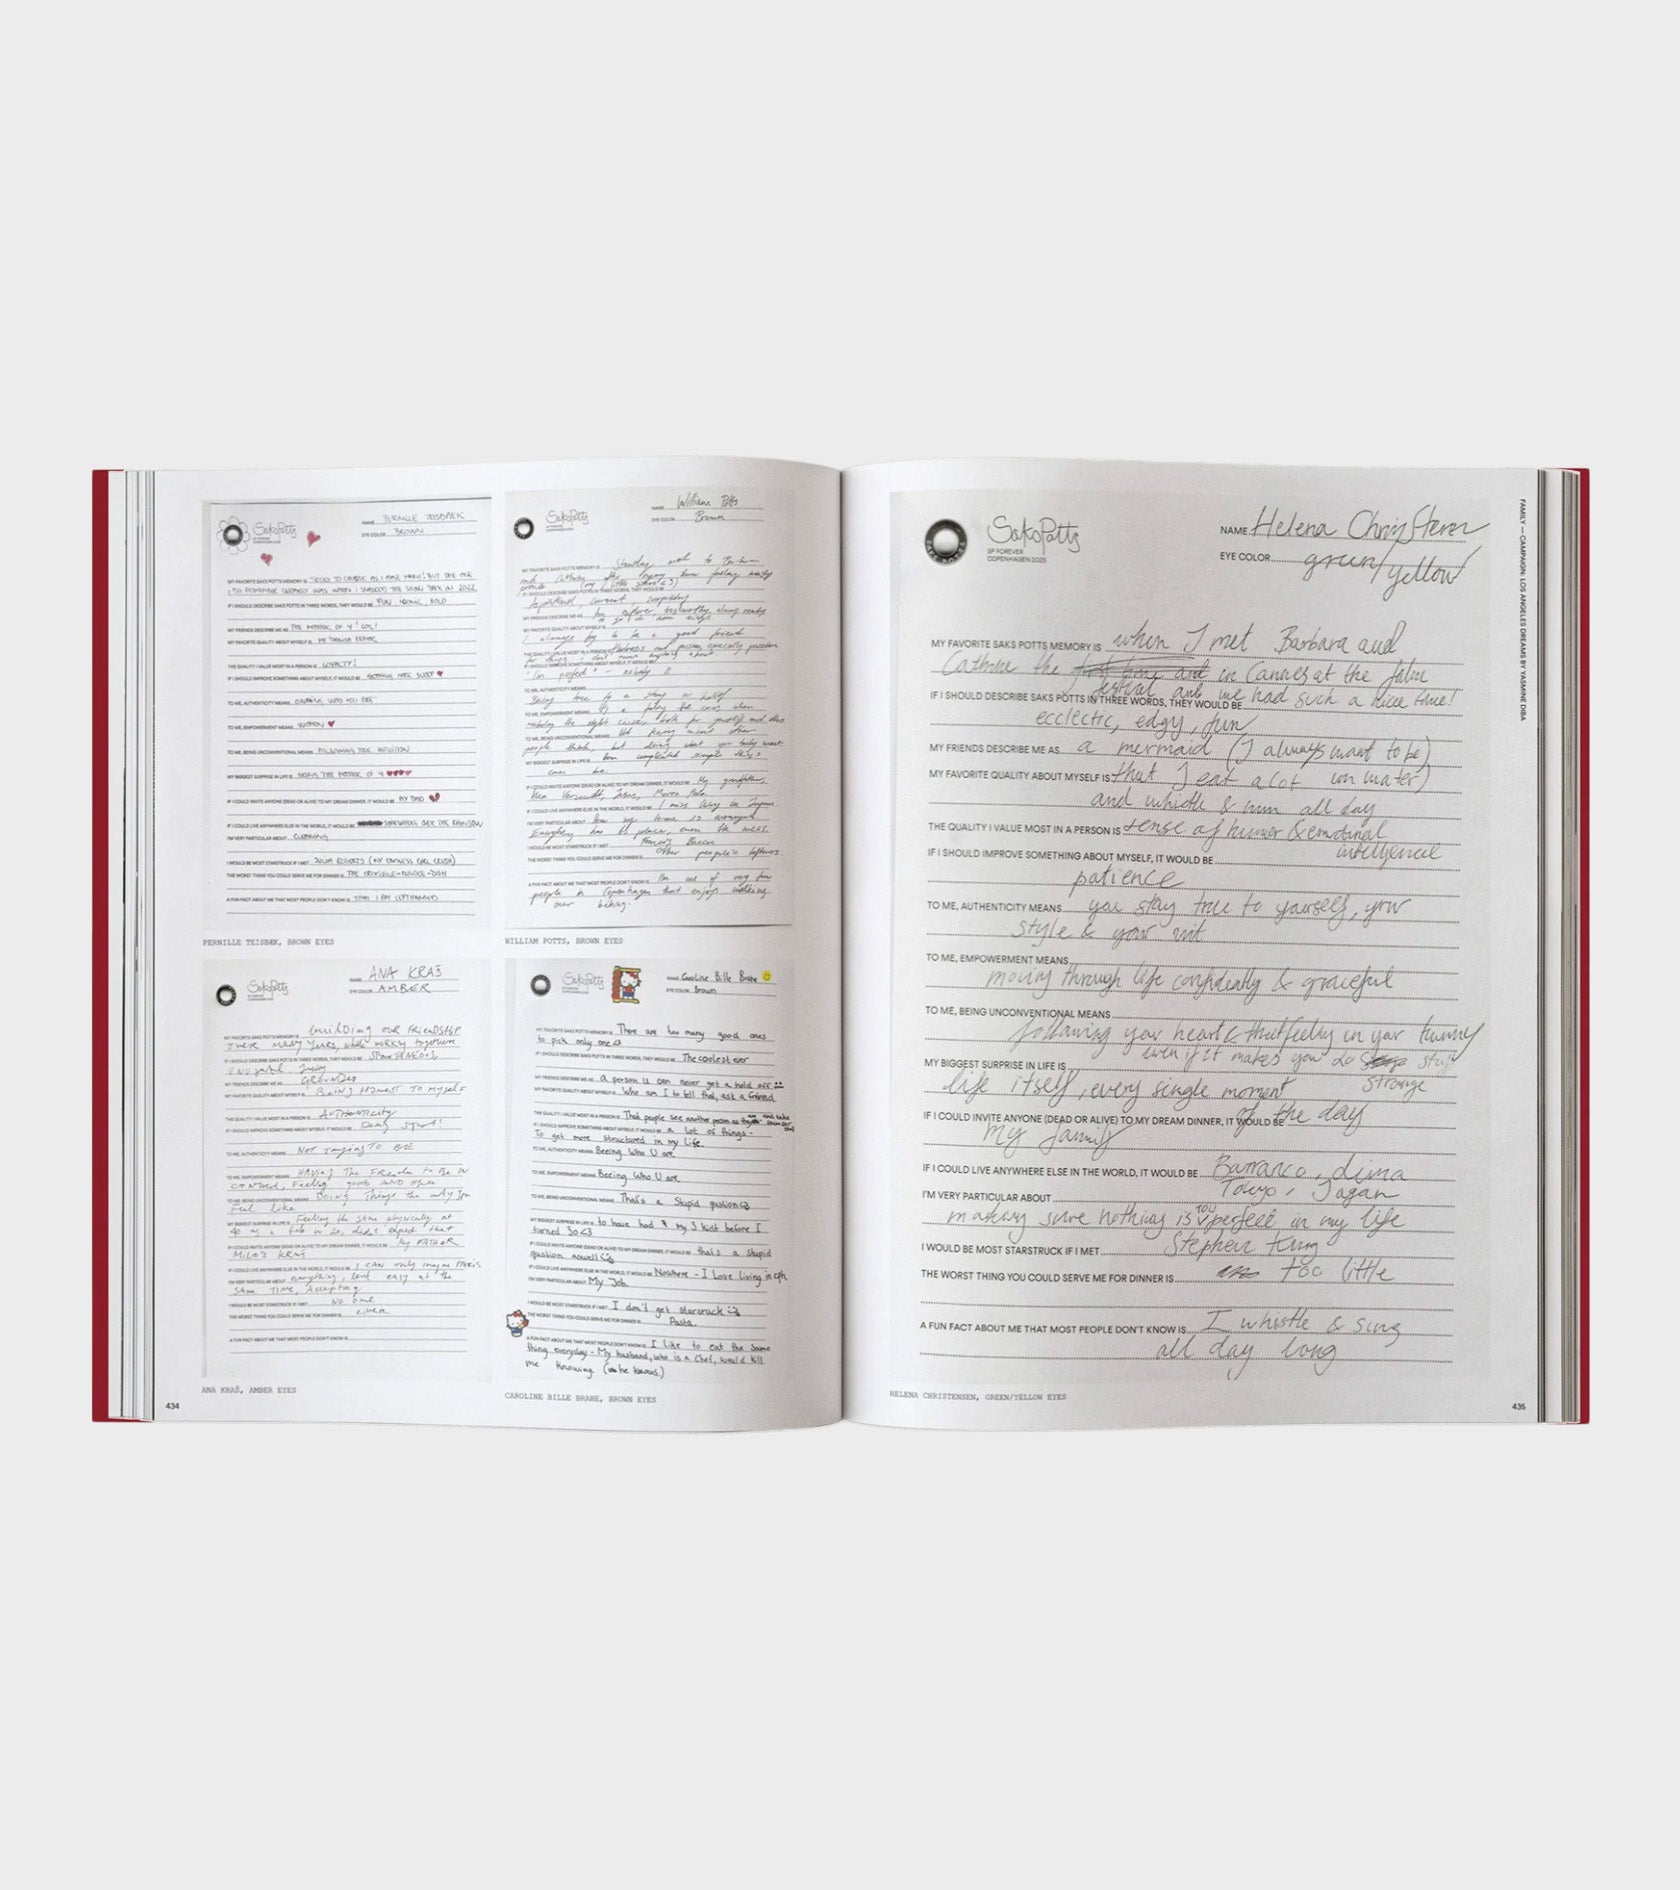 SaksPotts
SP FOREVER
COPENHAGEN 2025
NAME PERNILLE TEISBÆK
EYE COLOR BROWN
MY FAVORITE SAKS POTTS MEMORY IS TRICKY TO CHOOSE AS I HAVE MANY! BUT THE ONE
I DO REMEMBER WAS WHEN I THE SHOW BACK IN 2022
IF I SHOULD DESCRIBE SAKS POTTS IN THREE WORDS, THEY WOULD BE FUN, ICONIC, BOLD
MY FRIENDS DESCRIBE ME AS THE MOTHER OF 4! LOL!
MY FAVORITE QUALITY ABOUT MYSELF IS
THE QUALITY I VALUE MOST IN A PERSON IS LOYALTY!
IF I SHOULD IMPROVE SOMETHING ABOUT MYSELF, IT WOULD BE GETTING MORE SLEEP
TO ME, AUTHENTICITY MEANS WHO YOU ARE
TO ME, EMPOWERMENT MEANS WOMEN
TO ME, BEING UNCONVENTIONAL MEANS FOLLOWING YOUR INTUITION
MY BIGGEST SURPRISE IN LIFE IS BEING THE MOTHER OF 4
IF I COULD INVITE ANYONE (DEAD OR ALIVE) TO MY DREAM DINNER, IT WOULD BE MY DAD
IF I COULD LIVE ANYWHERE ELSE IN THE WORLD, IT WOULD BE SOMEWHERE OVER THE RAINBOW
I'M VERY PARTICULAR ABOUT CLEANING
I WOULD BE MOST STARSTRUCK IF I MET JULIA ROBERTS (MY GIRL CRUSH)
THE WORST THING YOU COULD SERVE ME FOR DINNER IS THE
A FUN FACT ABOUT ME THAT MOST PEOPLE DON'T KNOW IS THAT I AM LEFTHANDED
PERNILLE TEISBÆK, BROWN EYES
SaksPotts
SP FOREVER
COPENHAGEN 2025
NAME William Potts
EYE COLOR Brown
MY FAVORITE SAKS POTTS MEMORY IS Standing next to Barbara
and Cathrine feeling
proud (my little sisters <3)
IF I SHOULD DESCRIBE SAKS POTTS IN THREE WORDS, THEY WOULD BE
current, surprising
MY FRIENDS DESCRIBE ME AS trustworthy, always ready
MY FAVORITE QUALITY ABOUT MYSELF IS
I always try to be a good friend
THE QUALITY I VALUE MOST IN A PERSON IS and passion especially passion
for things I don't know anything about
IF I SHOULD IMPROVE SOMETHING ABOUT MYSELF, IT WOULD BE
"I'm perfect" - nobody is
TO ME, AUTHENTICITY MEANS
Being true to a story or belief
TO ME, EMPOWERMENT MEANS It's a when
making the right look for yourself and
TO ME, BEING UNCONVENTIONAL MEANS Not what other
people think, but doing what you want
MY BIGGEST SURPRISE IN LIFE IS how complicated simple things
can be
IF I COULD INVITE ANYONE (DEAD OR ALIVE) TO MY DREAM DINNER, IT WOULD BE My grandfather,
Jesus, Marco Polo
IF I COULD LIVE ANYWHERE ELSE IN THE WORLD, IT WOULD BE I miss living in
I'M VERY PARTICULAR ABOUT How my home is arranged
Everything has its place, even the mess
I WOULD BE MOST STARSTRUCK IF I MET Francis Bacon
THE WORST THING YOU COULD SERVE ME FOR DINNER IS Other people's leftovers
A FUN FACT ABOUT ME THAT MOST PEOPLE DON'T KNOW IS I'm one of very few
people in Copenhagen that enjoys walking
over biking.
WILLIAM POTTS, BROWN EYES
SaksPotts
SP FOREVER
COPENHAGEN 2025
NAME ANA KRAŠ
EYE COLOR AMBER
MY FAVORITE SAKS POTTS MEMORY IS building our FRIENDSHIP
OVER MANY YEARS, while working together
IF I SHOULD DESCRIBE SAKS POTTS IN THREE WORDS, THEY WOULD BE SPONTANEOUS,
MY FRIENDS DESCRIBE ME AS GROUNDED
MY FAVORITE QUALITY ABOUT MYSELF IS BEING HONEST TO MYSELF
THE QUALITY I VALUE MOST IN A PERSON IS AUTHENTICITY
IF I SHOULD IMPROVE SOMETHING ABOUT MYSELF, IT WOULD BE
TO ME, AUTHENTICITY MEANS NOT TRYING TO BE
TO ME, EMPOWERMENT MEANS HAVING THE FREEDOM TO BE IN
CONTROL, FEELING GOOD AND
TO ME, BEING UNCONVENTIONAL MEANS DOING THINGS the way you
Feel like
MY BIGGEST SURPRISE IN LIFE IS Feeling the same physically at
40 as I felt in 20, didn't expect that
IF I COULD INVITE ANYONE (DEAD OR ALIVE) TO MY DREAM DINNER, IT WOULD BE My FATHER
MILOŠ KRAŠ
IF I COULD LIVE ANYWHERE ELSE IN THE WORLD, IT WOULD BE I CAN only imagine PARIS
I'M VERY PARTICULAR ABOUT everything, and easy at the
SAME TIME, Accepting
I WOULD BE MOST STARSTRUCK IF I MET NO ONE
THE WORST THING YOU COULD SERVE ME FOR DINNER IS LIVER
A FUN FACT ABOUT ME THAT MOST PEOPLE DON'T KNOW IS
ANA KRAŠ, AMBER EYES
SaksPotts
SP FOREVER
COPENHAGEN 2025
NAME Caroline Bille Brahe
EYE COLOR Brown
MY FAVORITE SAKS POTTS MEMORY IS There are too many good ones
to pick only one <3
IF I SHOULD DESCRIBE SAKS POTTS IN THREE WORDS, THEY WOULD BE The coolest ever
MY FRIENDS DESCRIBE ME AS A person u can never get a hold off
MY FAVORITE QUALITY ABOUT MYSELF IS Who am I to tell that, ask a friend
THE QUALITY I VALUE MOST IN A PERSON IS That people see another person as they are and take
IF I SHOULD IMPROVE SOMETHING ABOUT MYSELF, IT WOULD BE a lot of things -
To get more structured in my life.
TO ME, AUTHENTICITY MEANS Beeing who U are.
TO ME, EMPOWERMENT MEANS Beeing Who U are.
TO ME, BEING UNCONVENTIONAL MEANS Thats a stupid qustion
MY BIGGEST SURPRISE IN LIFE IS to have had my 3 kids before I
turned 30 <3
IF I COULD INVITE ANYONE (DEAD OR ALIVE) TO MY DREAM DINNER, IT WOULD BE thats a stupid
qustion aswell
IF I COULD LIVE ANYWHERE ELSE IN THE WORLD, IT WOULD BE Nowhere - I Love living in cph
I'M VERY PARTICULAR ABOUT My Job.
I WOULD BE MOST STARSTRUCK IF I MET I don't get starstruck
THE WORST THING YOU COULD SERVE ME FOR DINNER IS Pasta.
A FUN FACT ABOUT ME THAT MOST PEOPLE DON'T KNOW IS I like to eat the same
thing everyday - My husband, who is a chef, would kill
me knowing (he knows.)
CAROLINE BILLE BRAHE, BROWN EYES
434
SaksPotts
SP FOREVER
COPENHAGEN 2025
NAME Helena Christensen
EYE COLOR green/yellow
MY FAVORITE SAKS POTTS MEMORY IS when I met Barbara and
Cathrine the first time and in Cannes at the film
festival and we had such a nice time!
IF I SHOULD DESCRIBE SAKS POTTS IN THREE WORDS, THEY WOULD BE
ecclectic, edgy, fun
MY FRIENDS DESCRIBE ME AS a mermaid (I always want to be)
in water)
MY FAVORITE QUALITY ABOUT MYSELF IS that I eat a lot
and whistle & hum all day
THE QUALITY I VALUE MOST IN A PERSON IS sense of humor & emotional
intelligence
IF I SHOULD IMPROVE SOMETHING ABOUT MYSELF, IT WOULD BE
patience
TO ME, AUTHENTICITY MEANS you stay true to yourself, your
style & your wit
TO ME, EMPOWERMENT MEANS
moving through life confidently & graceful
TO ME, BEING UNCONVENTIONAL MEANS
following your heart & that feeling in your tummy
even if it makes you do strange stuff
strange
MY BIGGEST SURPRISE IN LIFE IS
life itself, every single moment
of the day
IF I COULD INVITE ANYONE (DEAD OR ALIVE) TO MY DREAM DINNER, IT WOULD BE
My family
IF I COULD LIVE ANYWHERE ELSE IN THE WORLD, IT WOULD BE Barranco, Lima
Tokyo, Japan
I'M VERY PARTICULAR ABOUT
making sure nothing is TOO perfect in my life
I WOULD BE MOST STARSTRUCK IF I MET Stephen King
THE WORST THING YOU COULD SERVE ME FOR DINNER IS too little
A FUN FACT ABOUT ME THAT MOST PEOPLE DON'T KNOW IS I whistle & sing
all day long
HELENA CHRISTENSEN, GREEN/YELLOW EYES
FAMILY — CAMPAIGN: LOS ANGELES DREAMS BY YASMINE DIBA
435